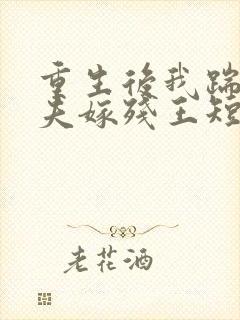 重生後我踹
夫嫁殘王短
老花酒